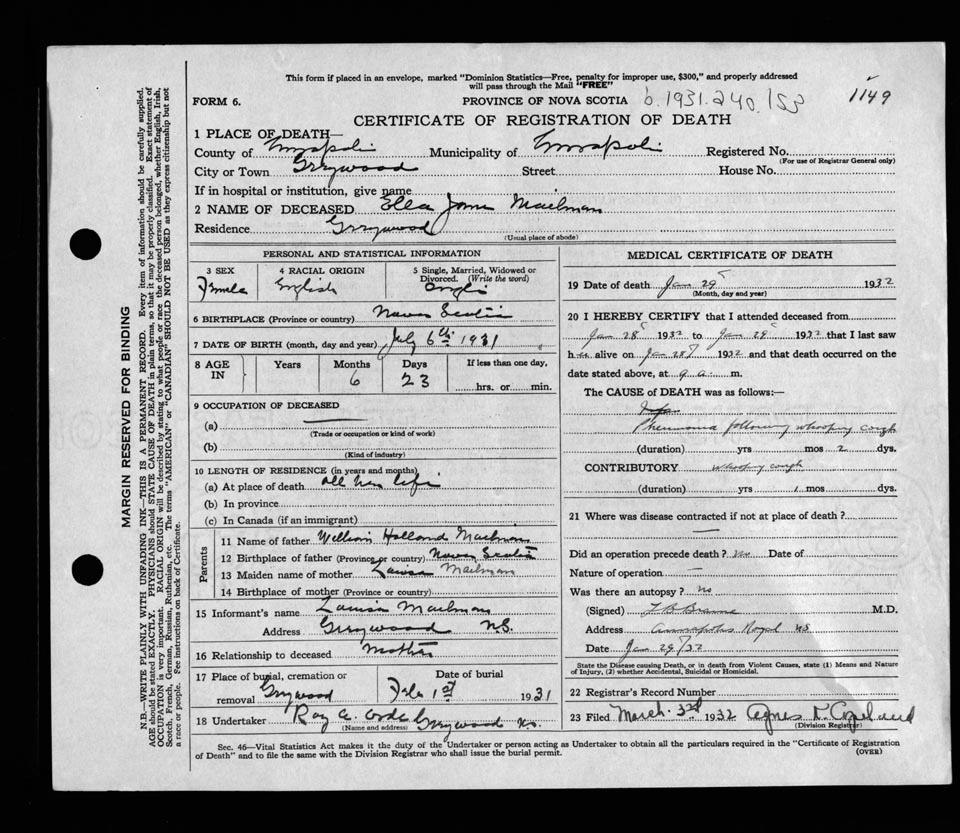 This form if placed in an envelope, marked "Dominion Statistics—Free, penalty for improper use, $300," and properly addressed
will pass through the Mail "FREE"
FORM 6.
PROVINCE OF NOVA SCOTIA b.1931.240.153 1149
CERTIFICATE OF REGISTRATION OF DEATH
1 PLACE OF DEATH—
County of Annapolis Municipality of Annapolis Registered No.
(For use of Registrar General only)
City or Town Greywood Street House No.
If in hospital or institution, give name
2 NAME OF DECEASED Ella Jane Mailman
Residence Greywood
(Usual place of abode)
PERSONAL AND STATISTICAL INFORMATION
3 SEX 4 RACIAL ORIGIN 5 Single, Married, Widowed or
Divorced. (Write the word)
Female English Single
6 BIRTHPLACE (Province or country) Nova Scotia
7 DATE OF BIRTH (month, day and year) July 6th 1931
8 AGE IN Years Months Days If less than one day,
6 23 hrs. or min.
9 OCCUPATION OF DECEASED
(a) —
(Trade or occupation or kind of work)
(b)
(Kind of industry)
10 LENGTH OF RESIDENCE (in years and months)
(a) At place of death all her life
(b) In province
(c) In Canada (if an immigrant)
Parents
11 Name of father William Holland Mailman
12 Birthplace of father (Province or country) Nova Scotia
13 Maiden name of mother Louisa Mailman
14 Birthplace of mother (Province or country)
15 Informant's name Louisa Mailman
Address Greywood N.S.
16 Relationship to deceased Mother
17 Place of burial, cremation or removal Greywood Date of burial Feb 1st 1931
18 Undertaker Roy A. Greywood N.S.
(Name and address)
MEDICAL CERTIFICATE OF DEATH
19 Date of death Jan 29 1932
(Month, day and year)
20 I HEREBY CERTIFY that I attended deceased from
Jan 28 1932 to Jan 29 1932 that I last saw
her alive on Jan 28 1932 and that death occurred on the
date stated above, at 9 a. m.
The CAUSE of DEATH was as follows:—
Pneumonia following whooping cough
(duration) yrs mos 2 dys.
CONTRIBUTORY whooping cough
(duration) yrs 1 mos dys.
21 Where was disease contracted if not at place of death?
—
Did an operation precede death? no Date of
Nature of operation —
Was there an autopsy? no
(Signed) M.D.
Address Annapolis Royal NS
Date Jan 29/32
State the Disease causing Death, or in death from Violent Causes, state (1) Means and Nature
of Injury, (2) whether Accidental, Suicidal or Homicidal.
22 Registrar's Record Number
23 Filed March 3rd 1932 Agnes D. Copeland
(Division Registrar)
Sec. 46—Vital Statistics Act makes it the duty of the Undertaker or person acting as Undertaker to obtain all the particulars required in the "Certificate of Registration
of Death" and to file the same with the Division Registrar who shall issue the burial permit.
(OVER)
MARGIN RESERVED FOR BINDING
N.B.—WRITE PLAINLY WITH UNFADING INK—THIS IS A PERMANENT RECORD. Every item of information should be carefully supplied.
AGE should be stated EXACTLY. PHYSICIANS should STATE CAUSE OF DEATH in plain terms, so that it may be properly classified. Exact statement of
OCCUPATION is very important. RACIAL ORIGIN will be described by stating to what people or race the deceased person belonged, whether English, Irish,
Scotch, French, German, Russian, Ruthenian, etc. The terms "AMERICAN" or "CANADIAN" SHOULD NOT BE USED as they express citizenship but not
a race or people. See instructions on back of Certificate.